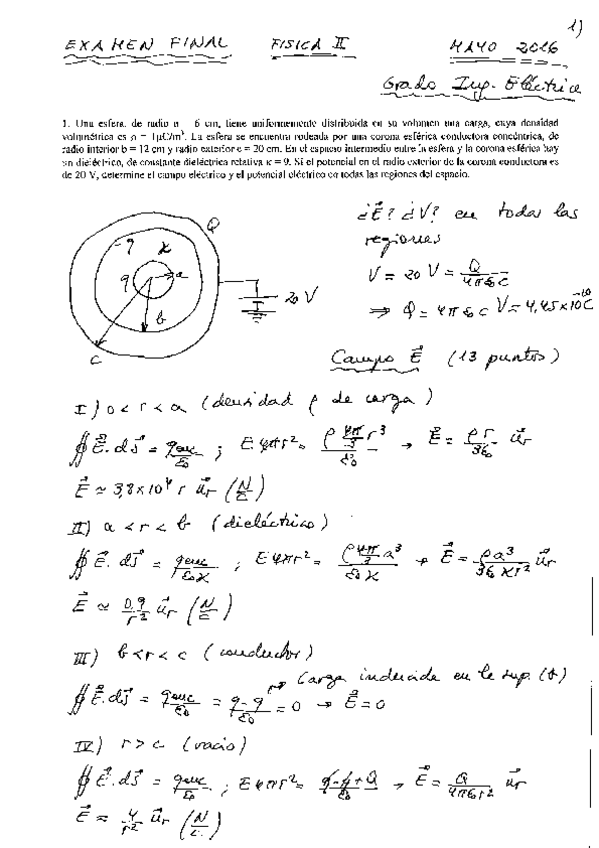 1)
EXAMEN FINAL FISICA II MAYO 2016
Grado Ing. Eléctrica
1. Una esfera, de radio a = 6 cm, tiene uniformemente distribuida en su volumen una carga, cuya densidad
volumétrica es ρ = 1μC/m³. La esfera se encuentra rodeada por una corona esférica conductora concéntrica, de
radio interior b = 12 cm y radio exterior c = 20 cm. En el espacio intermedio entre la esfera y la corona esférica hay
un dieléctrico, de constante dieléctrica relativa κ = 9. Si el potencial en el radio exterior de la corona conductora es
de 20 V, determine el campo eléctrico y el potencial eléctrico en todas las regiones del espacio.
¿E⃗? ¿V? en todas las
regiones
Q
-q κ
q a
b
c
20 V
V = 20 V = Q/4πε₀c
⇒ Q = 4πε₀c V = 4,45×10⁻¹⁰C
Campo E⃗ (13 puntos)
I) 0 < r < a (densidad ρ de carga)
∮E⃗.dS⃗ = q_enc/ε₀ ; E4πr² = ρ 4π/3 r³/ε₀ → E⃗ = ρr/3ε₀ u⃗r
E⃗ ≃ 3,8×10⁴ r u⃗r (N/C)
II) a < r < b (dieléctrico)
∮E⃗.dS⃗ = q_enc/ε₀κ ; E4πr² = ρ 4π/3 a³/ε₀κ → E⃗ = ρa³/3ε₀κr² u⃗r
E⃗ ≃ 0,9/r² u⃗r (N/C)
III) b < r < c (conductor)
Carga inducida en la sup. (b)
∮E⃗.dS⃗ = q_enc/ε₀ = q-q/ε₀ = 0 → E⃗ = 0
IV) r > c (vacío)
∮E⃗.dS⃗ = q_enc/ε₀ ; E4πr² = q-q+Q/ε₀ → E⃗ = Q/4πε₀r² u⃗r
E⃗ ≃ 4/r² u⃗r (N/C)